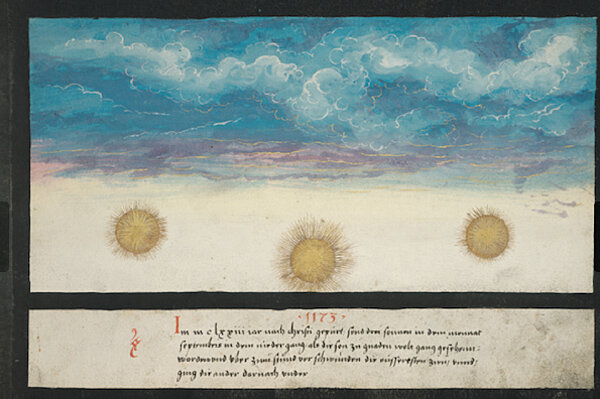 · 1173 ·
Im m c lxxiii iar nach christi gepürt send drei sonnen in dem monnat
septembris in dem nider gang als die son zu gnaden welt gang gesehenn
worden vnd vber zwai stund verschwunden die eussersten zwu vnnd
ging die ander darnach vnder